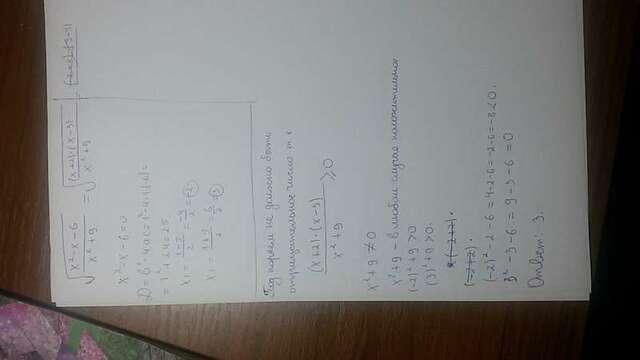 √((x²-x-6)/(x²+9)) = √(((x+2)·(x-3))/(x²+9))
x²-x-6=0
D=b²-4ac=1²-4·1·(-6)=
=1²+24=25
x₁ = (1-5)/2 = -4/2 = -2
x₂ = (1+5)/2 = 6/2 = 3
Под корнем не должно быть
отрицательное число т.к
((x+2)·(x-3))/(x²+9) ≥ 0
x²+9 ≠ 0
x²+9 - в любом случае положительное
(-2)²+9 >0
(3)²+9 >0.
(-2+2)·
(-2+2)·
(-2)²-2-6 = 4-2-6=-2-6=-8<0.
3²-3-6 = 9-3-6 = 0
Ответ: 3.